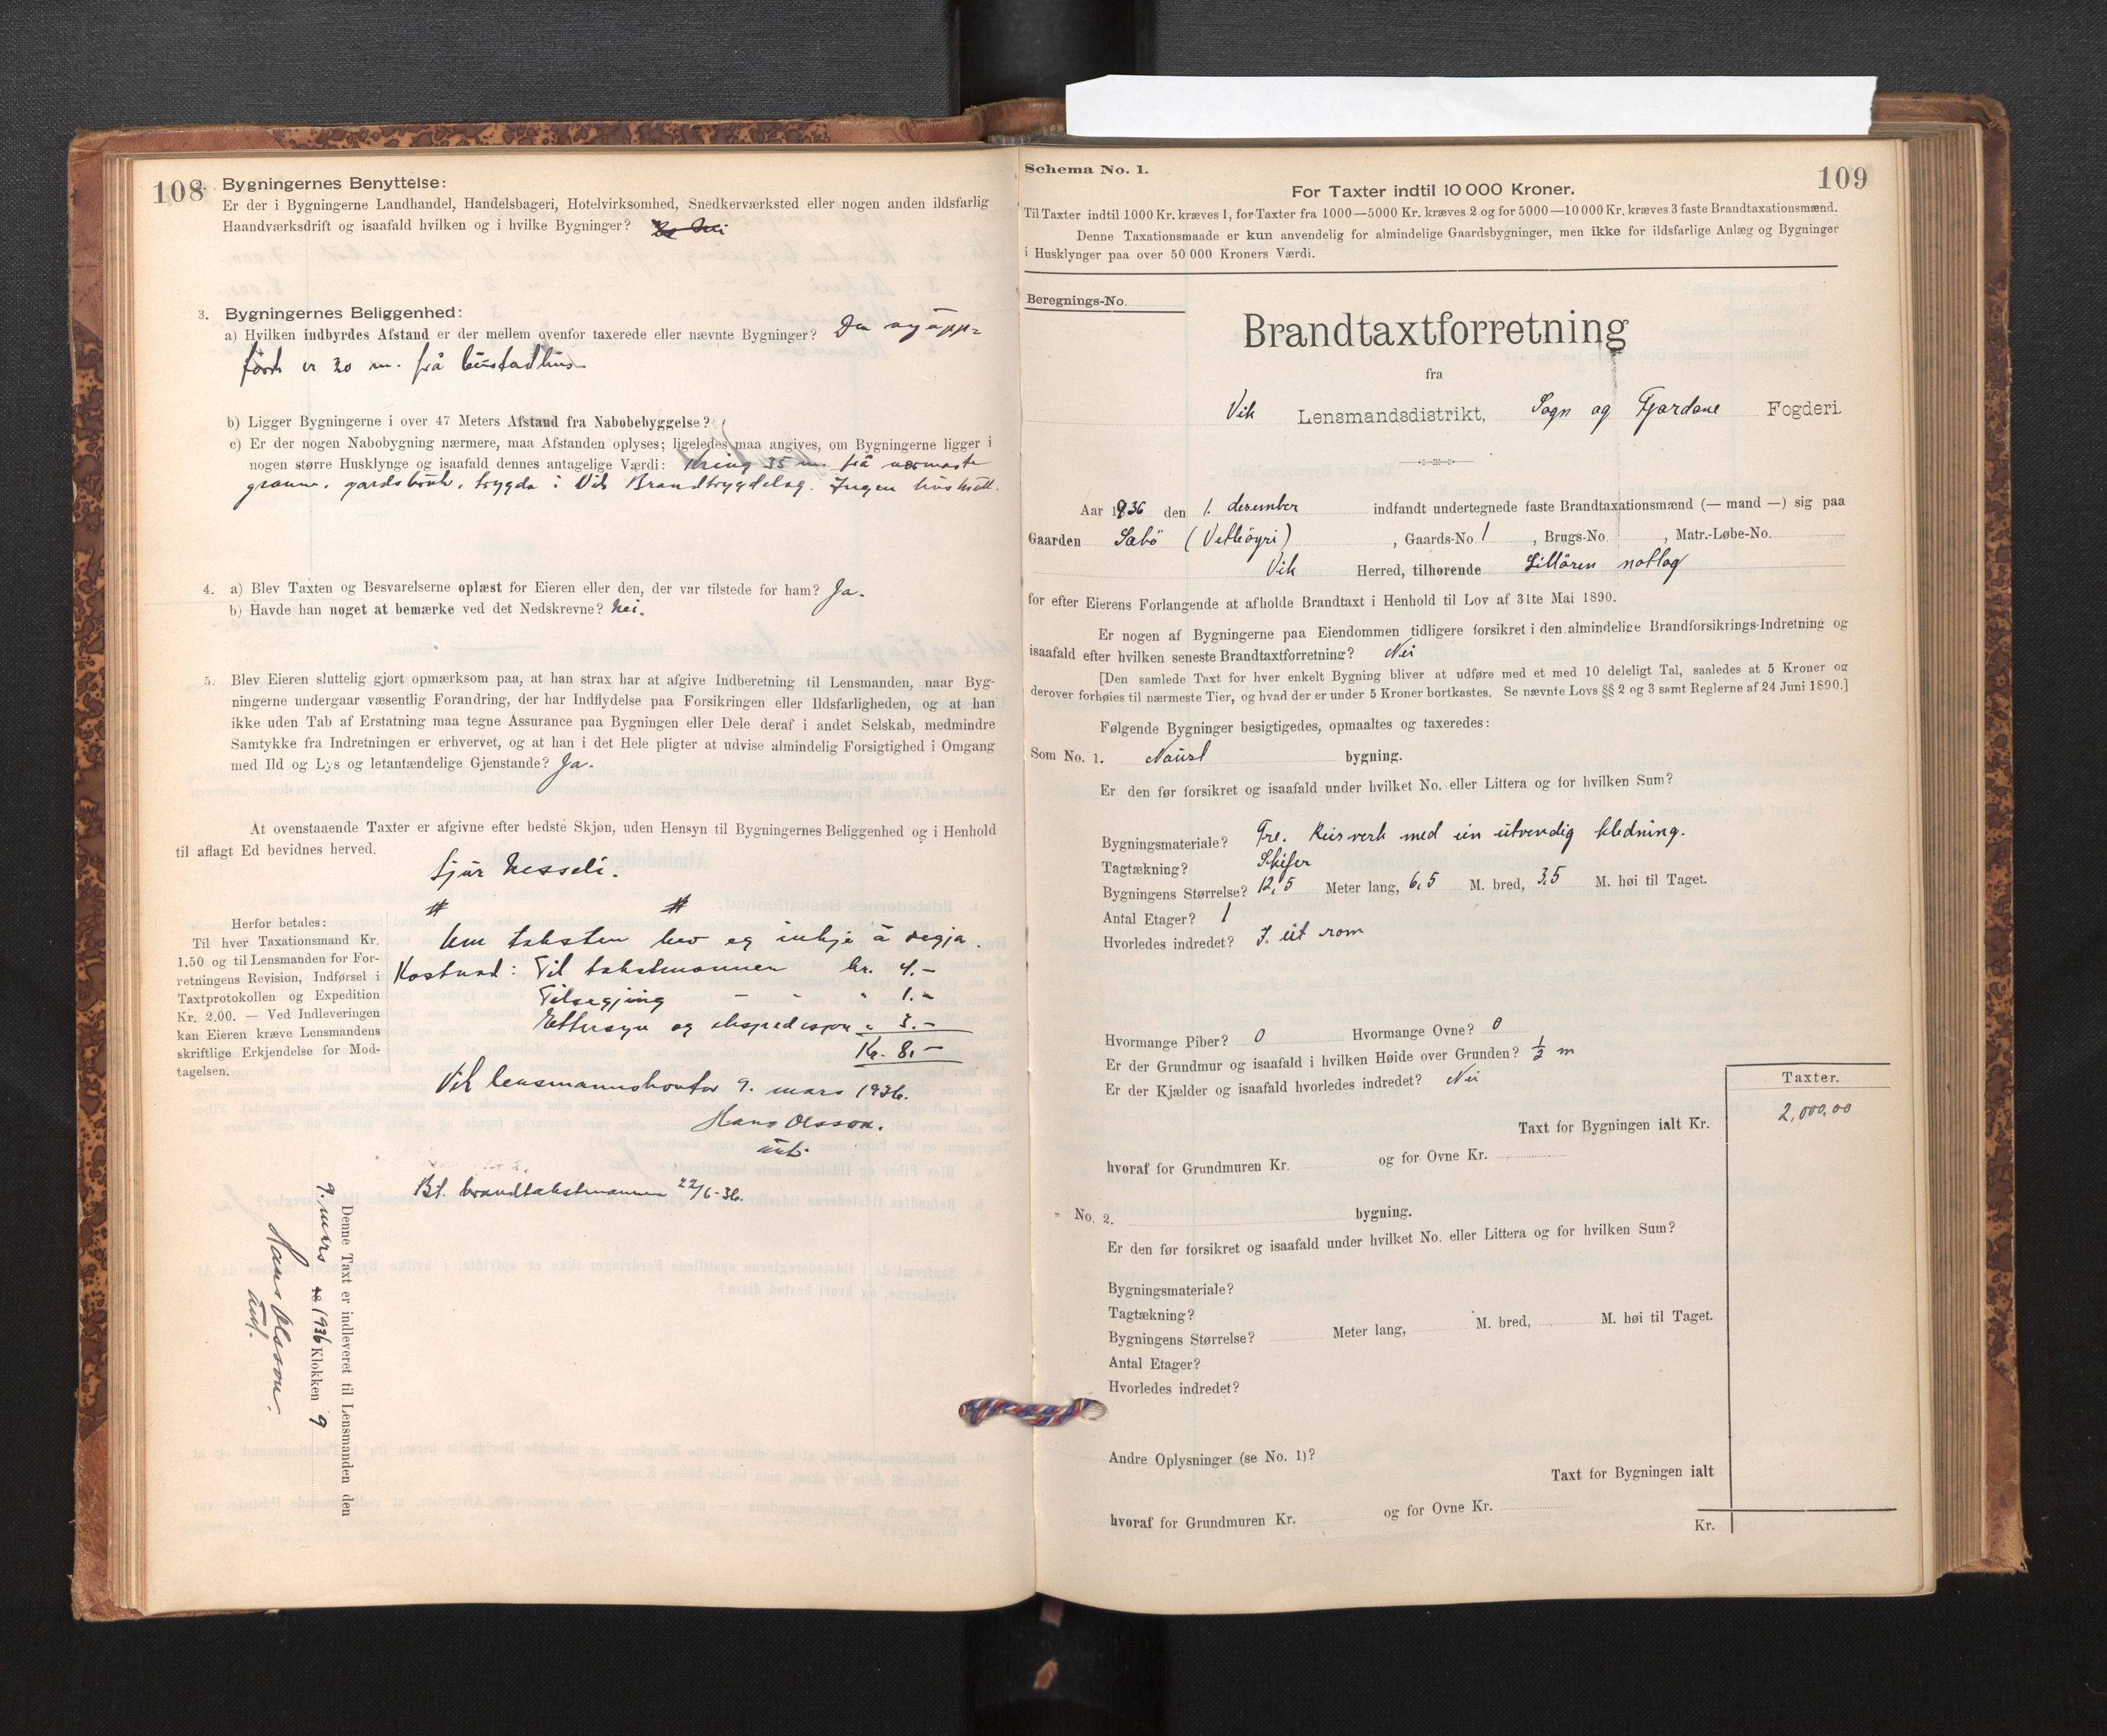 108
Bygningernes Benyttelse:
Er der i Bygningerne Landhandel, Handelsbageri, Hotelvirksomhed, Snedkerværksted eller nogen anden ildsfarlig
Haandværksdrift og isaafald hvilken og i hvilke Bygninger? Nei
3. Bygningernes Beliggenhed:
a) Hvilken indbyrdes Afstand er der mellem ovenfor taxerede eller nævnte Bygninger? Den nyupp-
førde er 20 m. frå bustadhus
b) Ligger Bygningerne i over 47 Meters Afstand fra Nabobebyggelse?
c) Er der nogen Nabobygning nærmere, maa Afstanden oplyses; ligeledes maa angives, om Bygningerne ligger i
nogen større Husklynge og isaafald dennes antagelige Værdi: Kring 35 m. frå næraste
granne, gardsbruk, trygda i Vik Brandtrygdelag. Ingen
4. a) Blev Taxten og Besvarelserne oplæst for Eieren eller den, der var tilstede for ham? Ja.
b) Havde han noget at bemærke ved det Nedskrevne? Nei.
5. Blev Eieren sluttelig gjort opmærksom paa, at han strax har at afgive Indberetning til Lensmanden, naar Byg-
ningerne undergaar væsentlig Forandring, der har Indflydelse paa Forsikringen eller Ildsfarligheden, og at han
ikke uden Tab af Erstatning maa tegne Assurance paa Bygningen eller Dele deraf i andet Selskab, medmindre
Samtykke fra Indretningen er erhvervet, og at han i det Hele pligter at udvise almindelig Forsigtighed i Omgang
med Ild og Lys og letantændelige Gjenstande? Ja.
At ovenstaaende Taxter er afgivne efter bedste Skjøn, uden Hensyn til Bygningernes Beliggenhed og i Henhold
til aflagt Ed bevidnes herved.
Sjur Nesseli.
Herfor betales:
Til hver Taxationsmand Kr.
1.50 og til Lensmanden for For-
retningens Revision, Indførsel i
Taxtprotokollen og Expedition
Kr. 2.00. — Ved Indleveringen
kan Eieren kræve Lensmandens
skriftlige Erkjendelse for Mod-
tagelsen.
# #
Um taksten hev eg inkje å segja.
Kostnad: Til takstmannen kr. 4.-
Tilsegjing - - " 1.-
Ettersyn og ekspedisjon " 3.-
Kr. 8.-
Vik lensmannskontor 9. mars 1936.
Hans Olsson.
Bt. brandtakstmannen 22/6-36.
Denne Taxt er indleveret til Lensmanden den
9. mars 1936 Klokken 9
Hans Olsson.
Schema No. 1.
109
For Taxter indtil 10 000 Kroner.
Til Taxter indtil 1000 Kr. kræves 1, for Taxter fra 1000—5000 Kr. kræves 2 og for 5000—10 000 Kr. kræves 3 faste Brandtaxationsmænd.
Denne Taxationsmaade er kun anvendelig for almindelige Gaardsbygninger, men ikke for ildsfarlige Anlæg og Bygninger
i Husklynger paa over 50 000 Kroners Værdi.
Beregnings-No.
Brandtaxtforretning
fra
Vik Lensmandsdistrikt, Sogn og Fjordane Fogderi.
Aar 1936 den 1. desember indfandt undertegnede faste Brandtaxationsmænd (— mand —) sig paa
Gaarden Sæbö (Vetleöyri), Gaards-No. 1, Brugs-No. , Matr.-Løbe-No.
Vik Herred, tilhørende Lillören notlag
for efter Eierens Forlangende at afholde Brandtaxt i Henhold til Lov af 31te Mai 1890.
Er nogen af Bygningerne paa Eiendommen tidligere forsikret i den almindelige Brandforsikrings-Indretning og
isaafald efter hvilken seneste Brandtaxtforretning? Nei
[Den samlede Taxt for hver enkelt Bygning bliver at udføre med et med 10 deleligt Tal, saaledes at 5 Kroner og
derover forhøies til nærmeste Tier, og hvad der er under 5 Kroner bortkastes. Se nævnte Lovs §§ 2 og 3 samt Reglerne af 24 Juni 1890.]
Følgende Bygninger besigtigedes, opmaaltes og taxeredes:
Som No. 1. Naust bygning.
Er den før forsikret og isaafald under hvilket No. eller Littera og for hvilken Sum?
Bygningsmateriale? Tre. Reisverk med ein utvendig kledning.
Tagtækning? Skifer
Bygningens Størrelse? 12,5 Meter lang, 6,5 M. bred, 3,5 M. høi til Taget.
Antal Etager? 1
Hvorledes indredet? I eit rom
Hvormange Piber? 0 Hvormange Ovne? 0
Er der Grundmur og isaafald i hvilken Høide over Grunden? ½ m
Er der Kjælder og isaafald hvorledes indredet? Nei
Taxter.
Taxt for Bygningen ialt Kr. 2,000,00
hvoraf for Grundmuren Kr. og for Ovne Kr.
" No. 2. bygning.
Er den før forsikret og isaafald under hvilket No. eller Littera og for hvilken Sum?
Bygningsmateriale?
Tagtækning?
Bygningens Størrelse? Meter lang, M. bred, M. høi til Taget.
Antal Etager?
Hvorledes indredet?
Andre Oplysninger (se No. 1)?
Taxt for Bygningen ialt
hvoraf for Grundmuren Kr. og for Ovne Kr.
Kr.